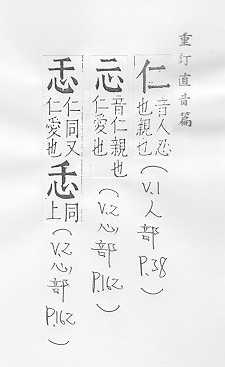 重訂直音篇
仁 音人忍也親也 (V.1人部 P.38)
忈 音仁親也仁愛也 (V.2心部 P.162)
忎 仁同又仁愛也 㣼 同上 (V.2心部 P.162)